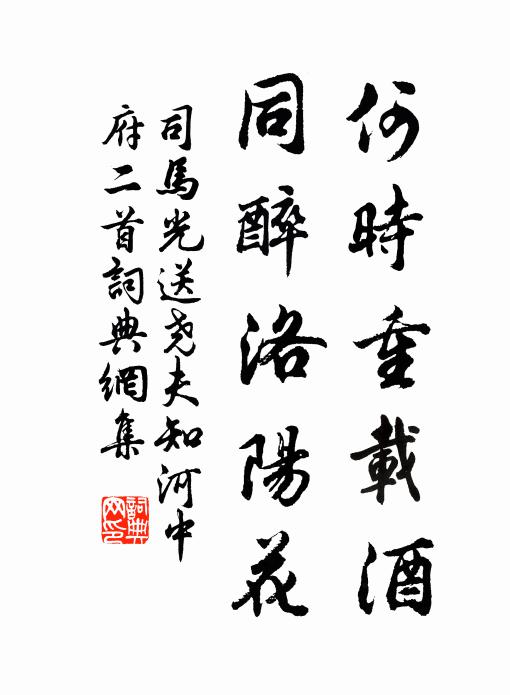 何時重載酒
同醉洛陽花
司馬光送尧夫知河中
府二首詞典網集
詞典
网印